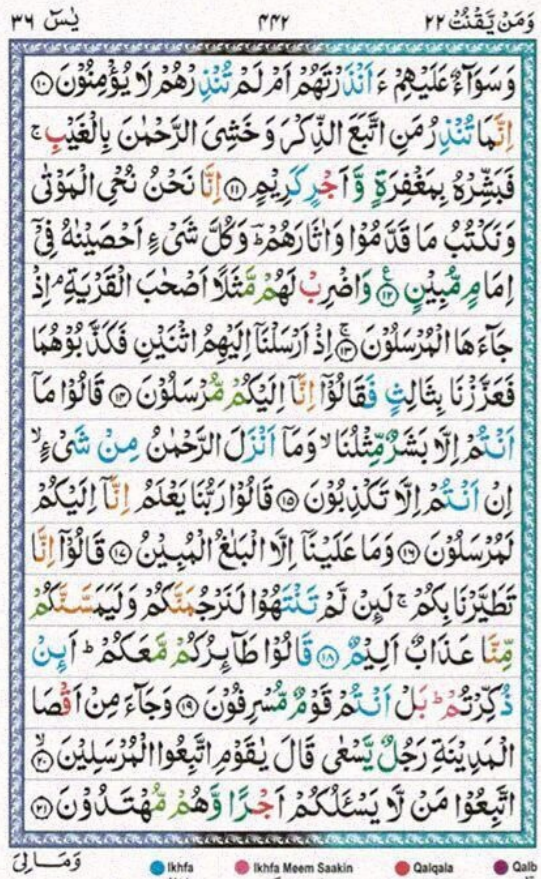 وَمَنۡ يَّقۡنُتۡ ٢٢ ٤٤٢ يٰسٓ ٣٦
وَسَوَآءٌ عَلَيۡهِمۡ ءَاَنۡذَرۡتَهُمۡ اَمۡ لَمۡ تُنۡذِرۡهُمۡ لَا يُؤۡمِنُوۡنَ ﴿١٠﴾
اِنَّمَا تُنۡذِرُ مَنِ اتَّبَعَ الذِّكۡرَ وَخَشِىَ الرَّحۡمٰنَ بِالۡغَيۡبِ ۚ
فَبَشِّرۡهُ بِمَغۡفِرَةٍ وَّاَجۡرٍ كَرِيۡمٍ ﴿١١﴾ اِنَّا نَحۡنُ نُحۡىِ الۡمَوۡتٰى
وَنَكۡتُبُ مَا قَدَّمُوۡا وَاٰثَارَهُمۡ ؕ وَكُلَّ شَىۡءٍ اَحۡصَيۡنٰهُ فِىۡۤ
اِمَامٍ مُّبِيۡنٍ ﴿١٢﴾ وَاضۡرِبۡ لَهُمۡ مَّثَلًا اَصۡحٰبَ الۡقَرۡيَةِ ۘ اِذۡ
جَآءَهَا الۡمُرۡسَلُوۡنَ ﴿١٣﴾ اِذۡ اَرۡسَلۡنَاۤ اِلَيۡهِمُ اثۡنَيۡنِ فَكَذَّبُوۡهُمَا
فَعَزَّزۡنَا بِثَالِثٍ فَقَالُوۡۤا اِنَّاۤ اِلَيۡكُمۡ مُّرۡسَلُوۡنَ ﴿١٤﴾ قَالُوۡا مَاۤ
اَنۡتُمۡ اِلَّا بَشَرٌ مِّثۡلُنَا ۙ وَمَاۤ اَنۡزَلَ الرَّحۡمٰنُ مِنۡ شَىۡءٍ ۙ
اِنۡ اَنۡتُمۡ اِلَّا تَكۡذِبُوۡنَ ﴿١٥﴾ قَالُوۡا رَبُّنَا يَعۡلَمُ اِنَّاۤ اِلَيۡكُمۡ
لَمُرۡسَلُوۡنَ ﴿١٦﴾ وَمَا عَلَيۡنَاۤ اِلَّا الۡبَلٰغُ الۡمُبِيۡنُ ﴿١٧﴾ قَالُوۡۤا اِنَّا
تَطَيَّرۡنَا بِكُمۡ ۚ لَئِنۡ لَّمۡ تَنۡتَهُوۡا لَنَرۡجُمَنَّكُمۡ وَلَيَمَسَّنَّكُمۡ
مِّنَّا عَذَابٌ اَلِيۡمٌ ﴿١٨﴾ قَالُوۡا طَآئِرُكُمۡ مَّعَكُمۡ ؕ اَئِنۡ
ذُكِّرۡتُمۡ ؕ بَلۡ اَنۡتُمۡ قَوۡمٌ مُّسۡرِفُوۡنَ ﴿١٩﴾ وَجَآءَ مِنۡ اَقۡصَا
الۡمَدِيۡنَةِ رَجُلٌ يَّسۡعٰى قَالَ يٰقَوۡمِ اتَّبِعُوا الۡمُرۡسَلِيۡنَ ۙ﴿٢٠﴾
اتَّبِعُوۡا مَنۡ لَّا يَسۡئَلُكُمۡ اَجۡرًا وَّهُمۡ مُّهۡتَدُوۡنَ ﴿٢١﴾
وَمَا لِىَ
Ikhfa Ikhfa Meem Saakin Qalqala Qalb